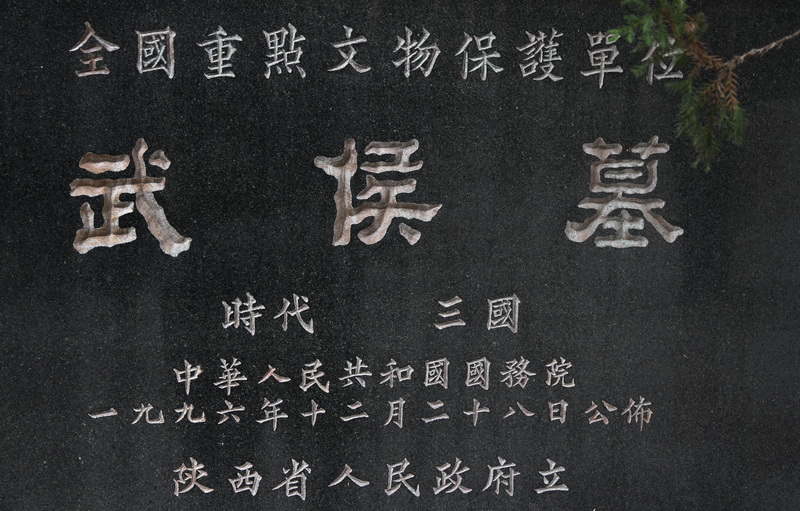 全國重點文物保護單位
武侯墓
時代 三國
中華人民共和國國務院
一九九六年十二月二十八日公佈
陝西省人民政府立